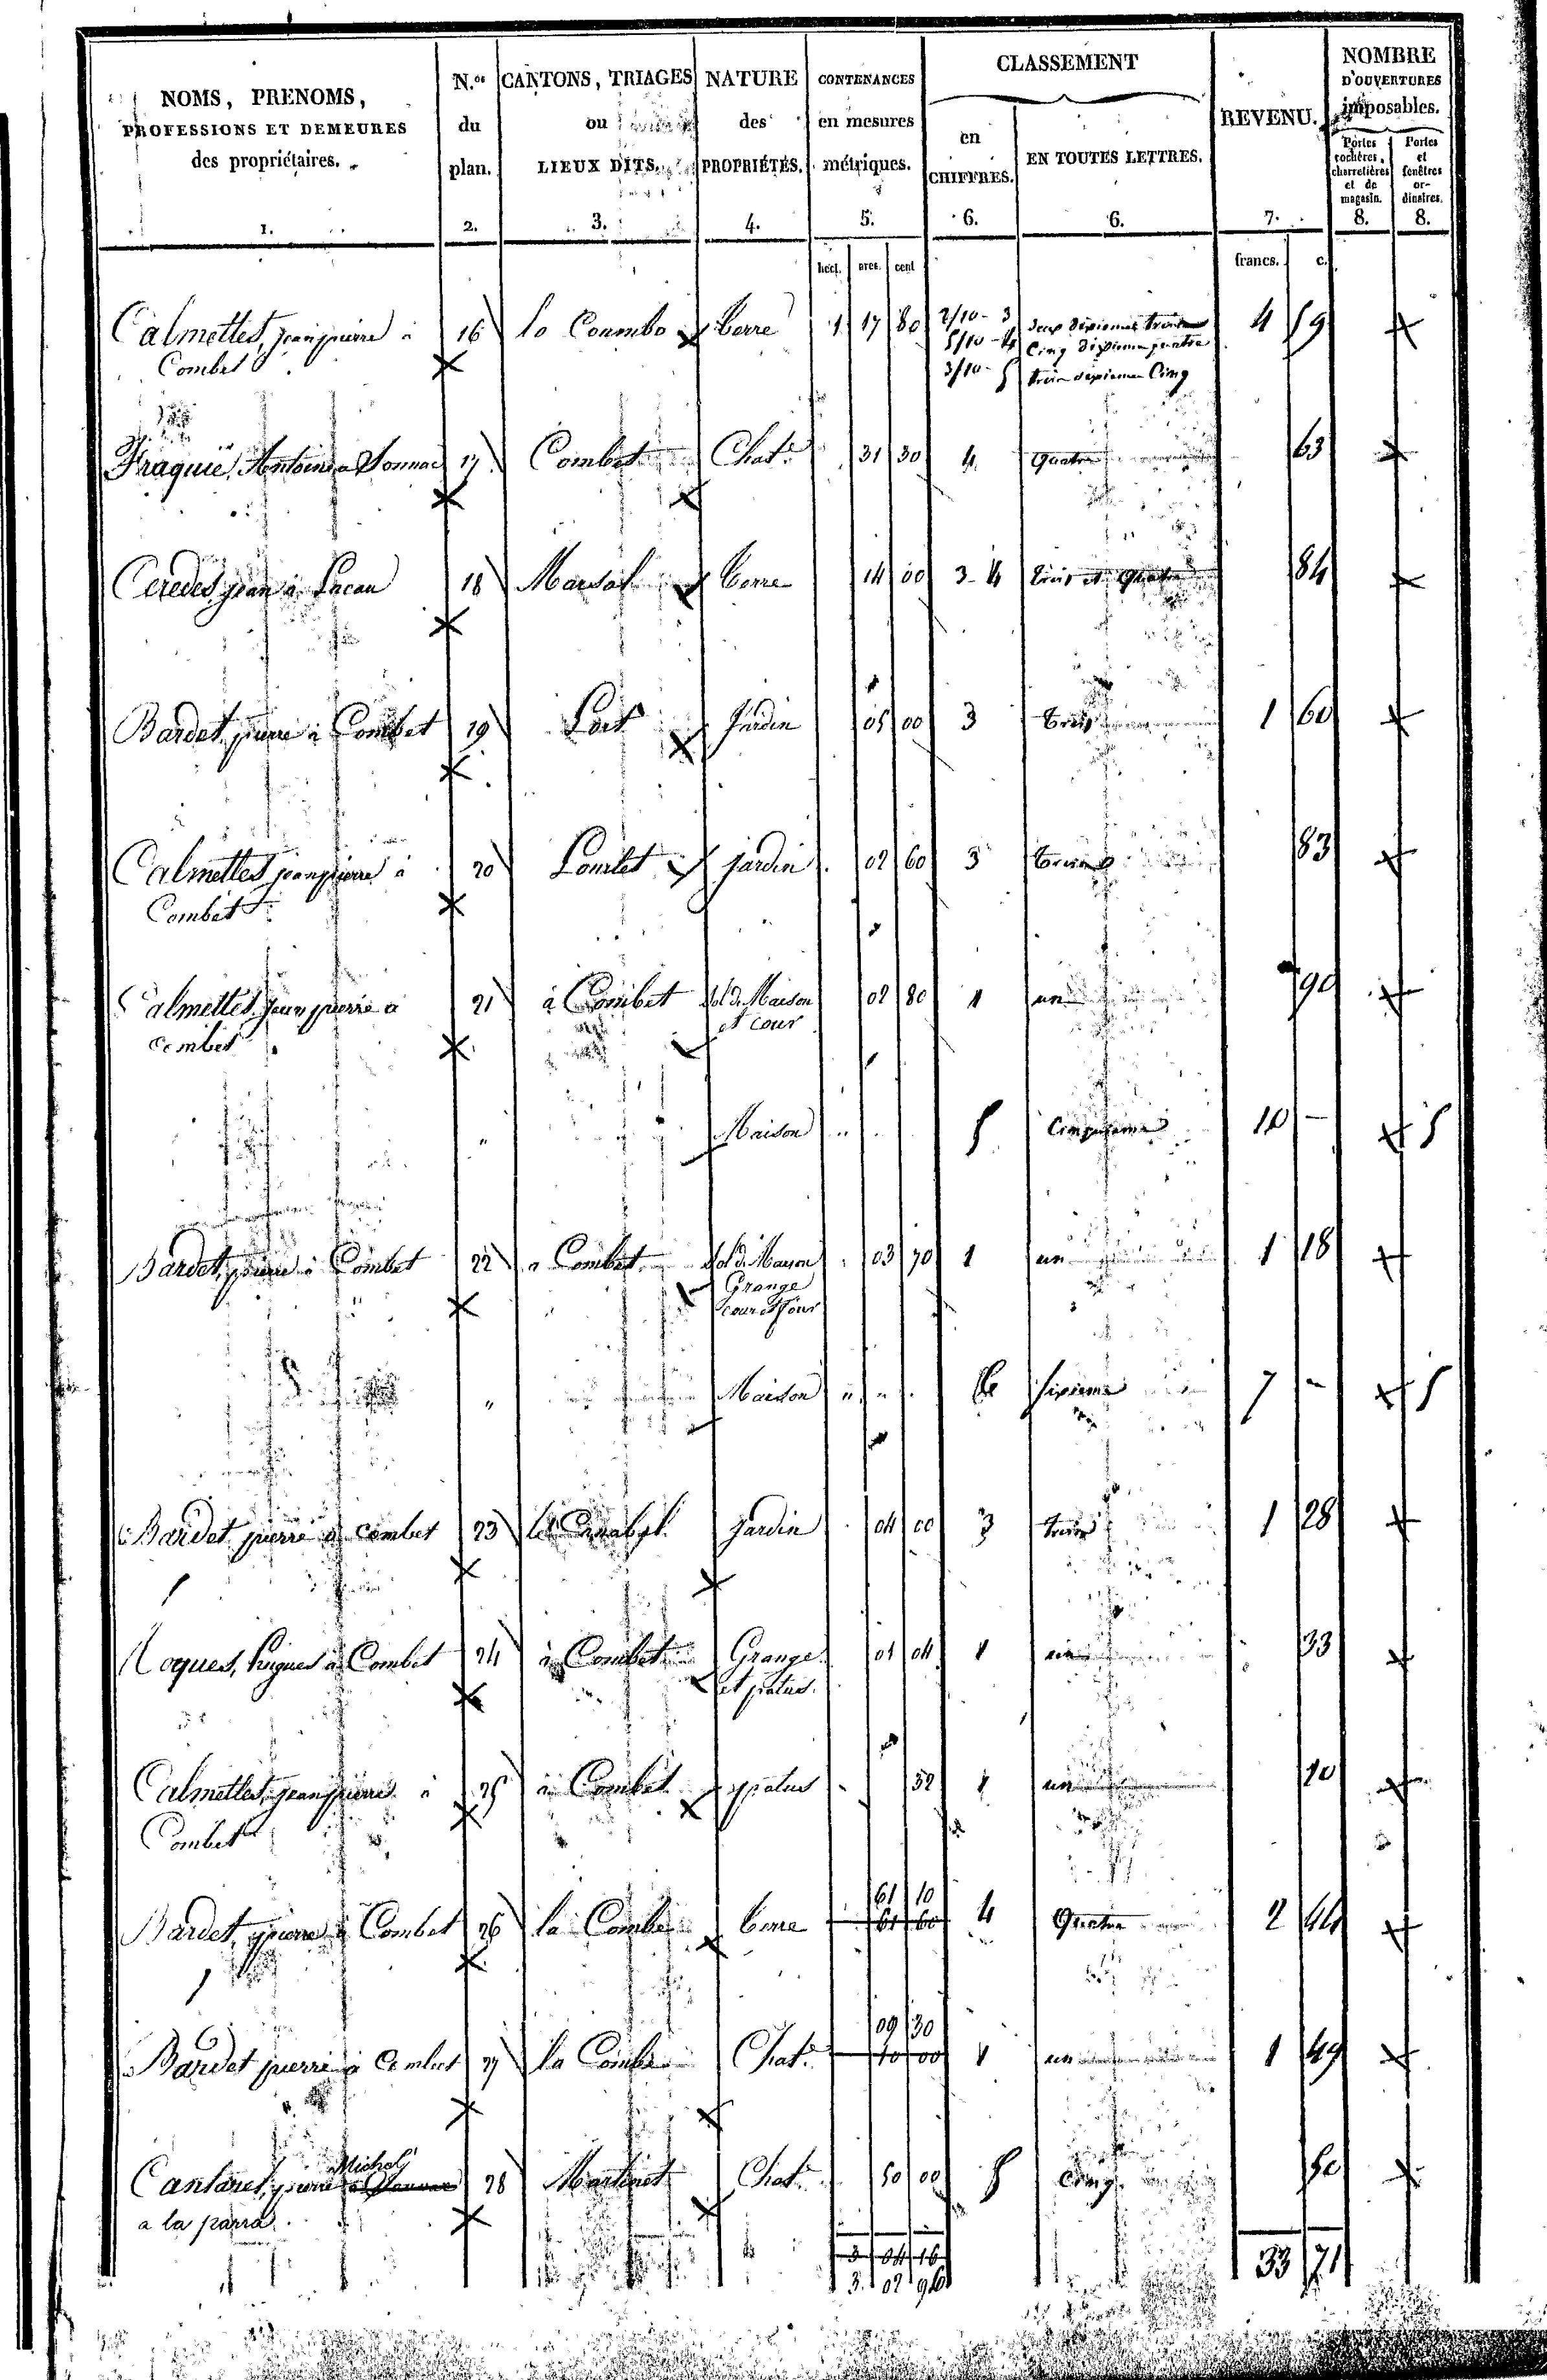 NOMS, PRENOMS, PROFESSIONS ET DEMEURES des propriétaires. 1.
N.os du plan. 2.
CANTONS, TRIAGES ou LIEUX DITS. 3.
NATURE des PROPRIÉTÉS. 4.
CONTENANCES en mesures métriques. 5.
CLASSEMENT
en CHIFFRES. 6.
EN TOUTES LETTRES. 6.
REVENU. 7.
NOMBRE D'OUVERTURES imposables.
Portes cochères, charretières et de magasin. 8.
Portes et fenêtres ordinaires. 8.
hect. ares. cent francs. c.
Calmettes, jean pierre à 16 lo Coumbo terre 1 17 80 2/10 - 3 deux dixiemes trois 4 59
5/10 - 4 Cinq dixieme quatre
Combet 3/10 - 5 trois dixieme Cinq
Fraquié, Antoine a Sonnac 17 Combet Chat. 31 30 4 Quatre 63
Ceredes jean à Lacau 18 Marsal terre 14 00 3-4 trois et Quatre 84
Bardet, pierre à Combet 19 Jardin 05 00 3 trois 1 60
Calmettes, jean pierre à 20 jardin 02 60 3 trois 83
Combet
Calmettes, jean pierre a 21 à Combet sol de Maison 02 80 1 un 90
combet et cour
" Maison " 5 Cinquieme 10 - 5
Bardet, pierre à Combet 22 a Combet sol de Maison 03 70 1 un 1 18
Grange
cour et four
" Maison " " 6e sixieme 7 - 5
Bardet pierre à combet 23 jardin 04 00 3 trois 1 28
Roques, Hugues à Combet 24 à Combet Grange 01 04 1 un 33
et patus
Calmettes, jean pierre à 25 à Combet patus 32 1 un 10
Combet
61 10
Bardet, pierre à Combet 26 la Combe terre 61 60 4 Quatre 2 44
09 30
Bardet pierre à Combet 27 la Combe Chat. 10 00 1 un 1 49
Michel
Cantaret, pierre 28 Martinet Chat. 50 00 5 Cinq 50
a la parra
3 04 16
3 02 96 33 71